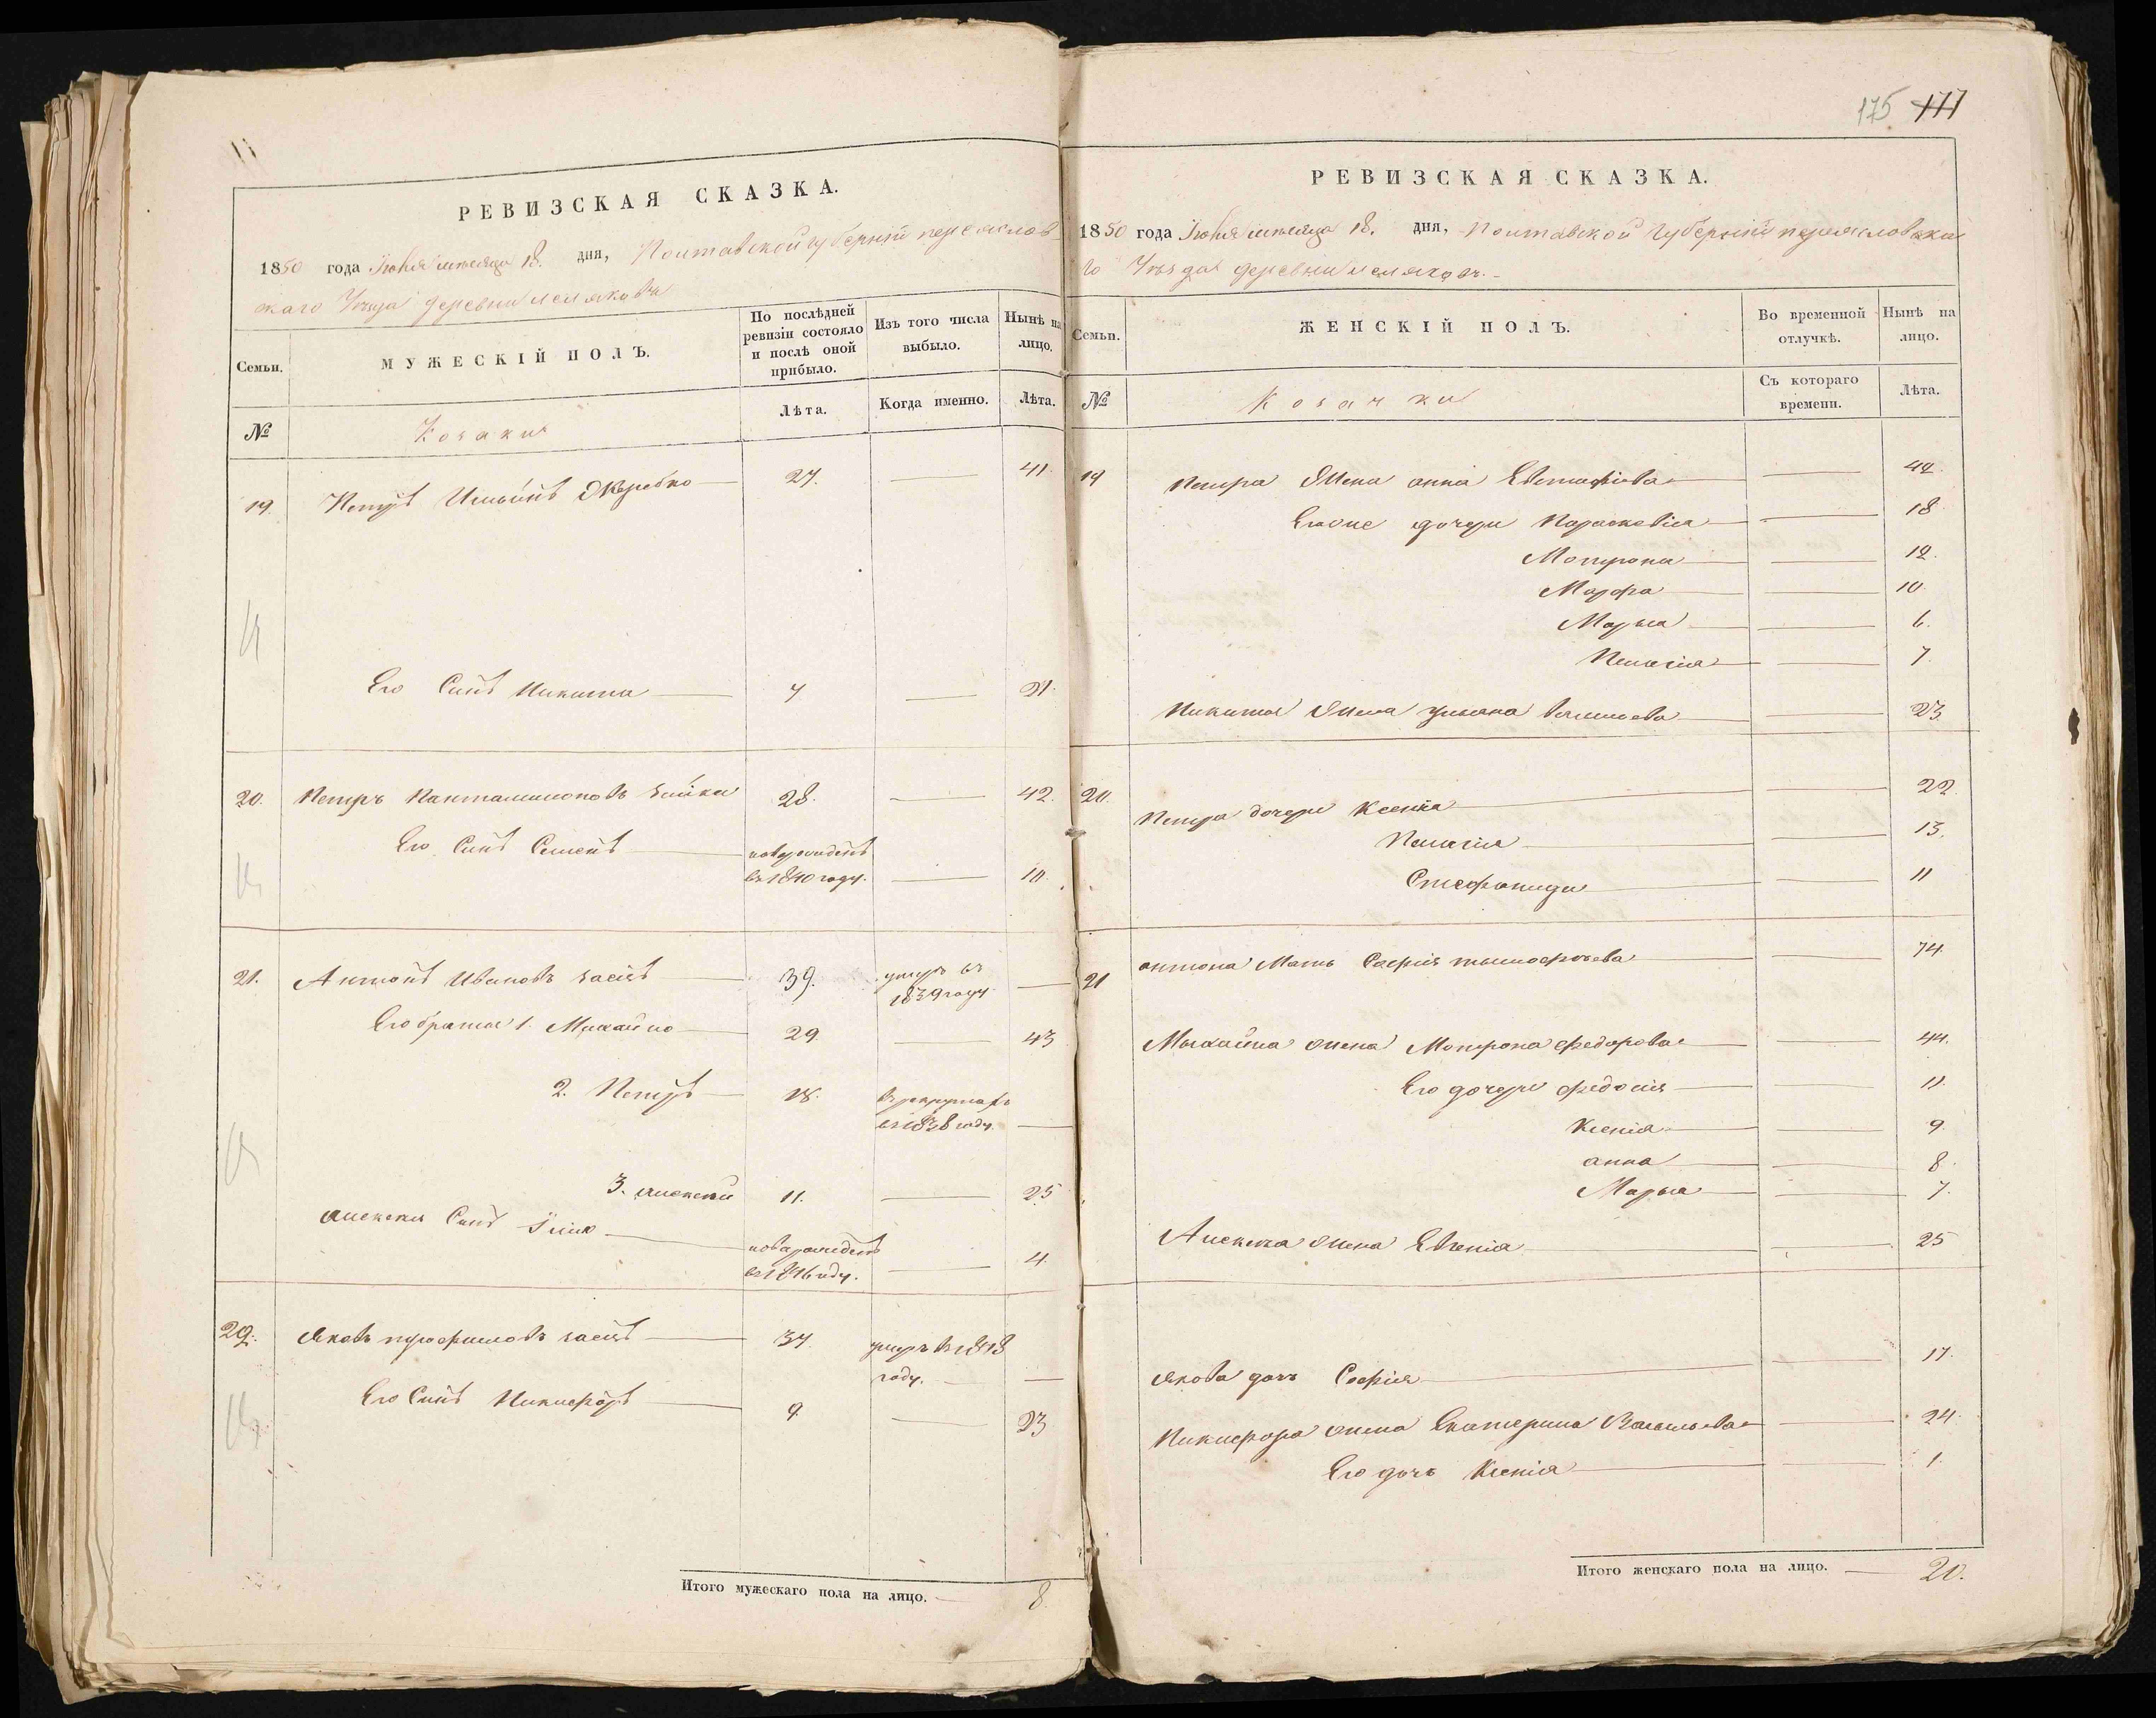 11
РЕВИЗСКАЯ СКАЗКА.
1850 года Іюня месяца 18. дня, Полтавской губерніи переяслов
скаго Уезда деревни
Семьи.
МУЖЕСКІЙ ПОЛЪ.
По послѣдней ревизіи состояло и послѣ оной прибыло.
Изъ того числа выбыло.
Нынѣ на лицо.
№
Козаки
Лѣта.
Когда именно.
Лѣта.
19. Петръ Ильинъ 27. 41.
Его Синъ Никита 7 21.
20. Петръ Панталимоновъ 28. 42.
Его Синъ Семенъ новорожденъ 10.
въ 1840 году.
21. Антонъ Ивановъ 39. умеръ въ
1839 году
Его братья 1. Михайло 29. 43
2. Петръ 18. въ рекрутахъ
году.
3. Алексей 11. 25
Алексея Синъ новорожденъ 4.
въ 1846 году.
22. Яковъ 34. умеръ въ 1848
году.
Его Синъ Никифоръ 9 23
Итого мужескаго пола на лицо. 8.
175 177
РЕВИЗСКАЯ СКАЗКА.
1850 года Іюня месяца 18. дня, Полтавской Губерніи переясловска
го Уезда деревни
Семьи.
ЖЕНСКІЙ ПОЛЪ.
Во временной отлучкѣ.
Нынѣ на лицо.
№
Козачки
Съ котораго времени.
Лѣта.
19 Петра Жена анна Евстафіева 42.
дочери Параскевія 18
Мотрона 12.
Марфа 10.
Марья 6.
Пелагія 7
Никиты Жена ульяна 23
20. Петра дочери Ксенія 22
Пелагія 13.
Стефанида 11
21 антона Мать Софія тымофеева 74.
Михайла жена Мотрона федорова 44.
Его дочери федосія 11.
Ксенія 9.
анна 8.
Марья 7.
Алексея жена Евгенія 25
якова дочь Софія 17.
Никифора жена Екатерина Васильева 24.
Его дочь Ксенія 1.
Итого женскаго пола на лицо. 20.